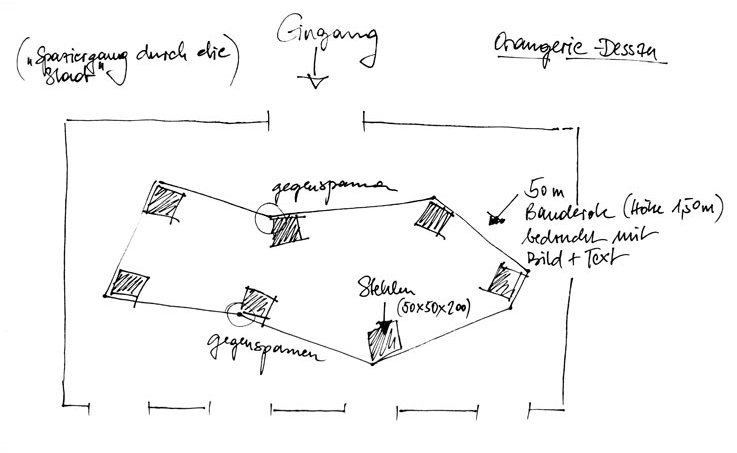 Eingang
Orangerie - Dessau
("Spaziergang durch die
Stadt")
gegenspannen
50m
Banderole (Höhe 1,50m)
bedruckt mit
Bild + Text
Stehlen
(50x50x200)
gegenspannen